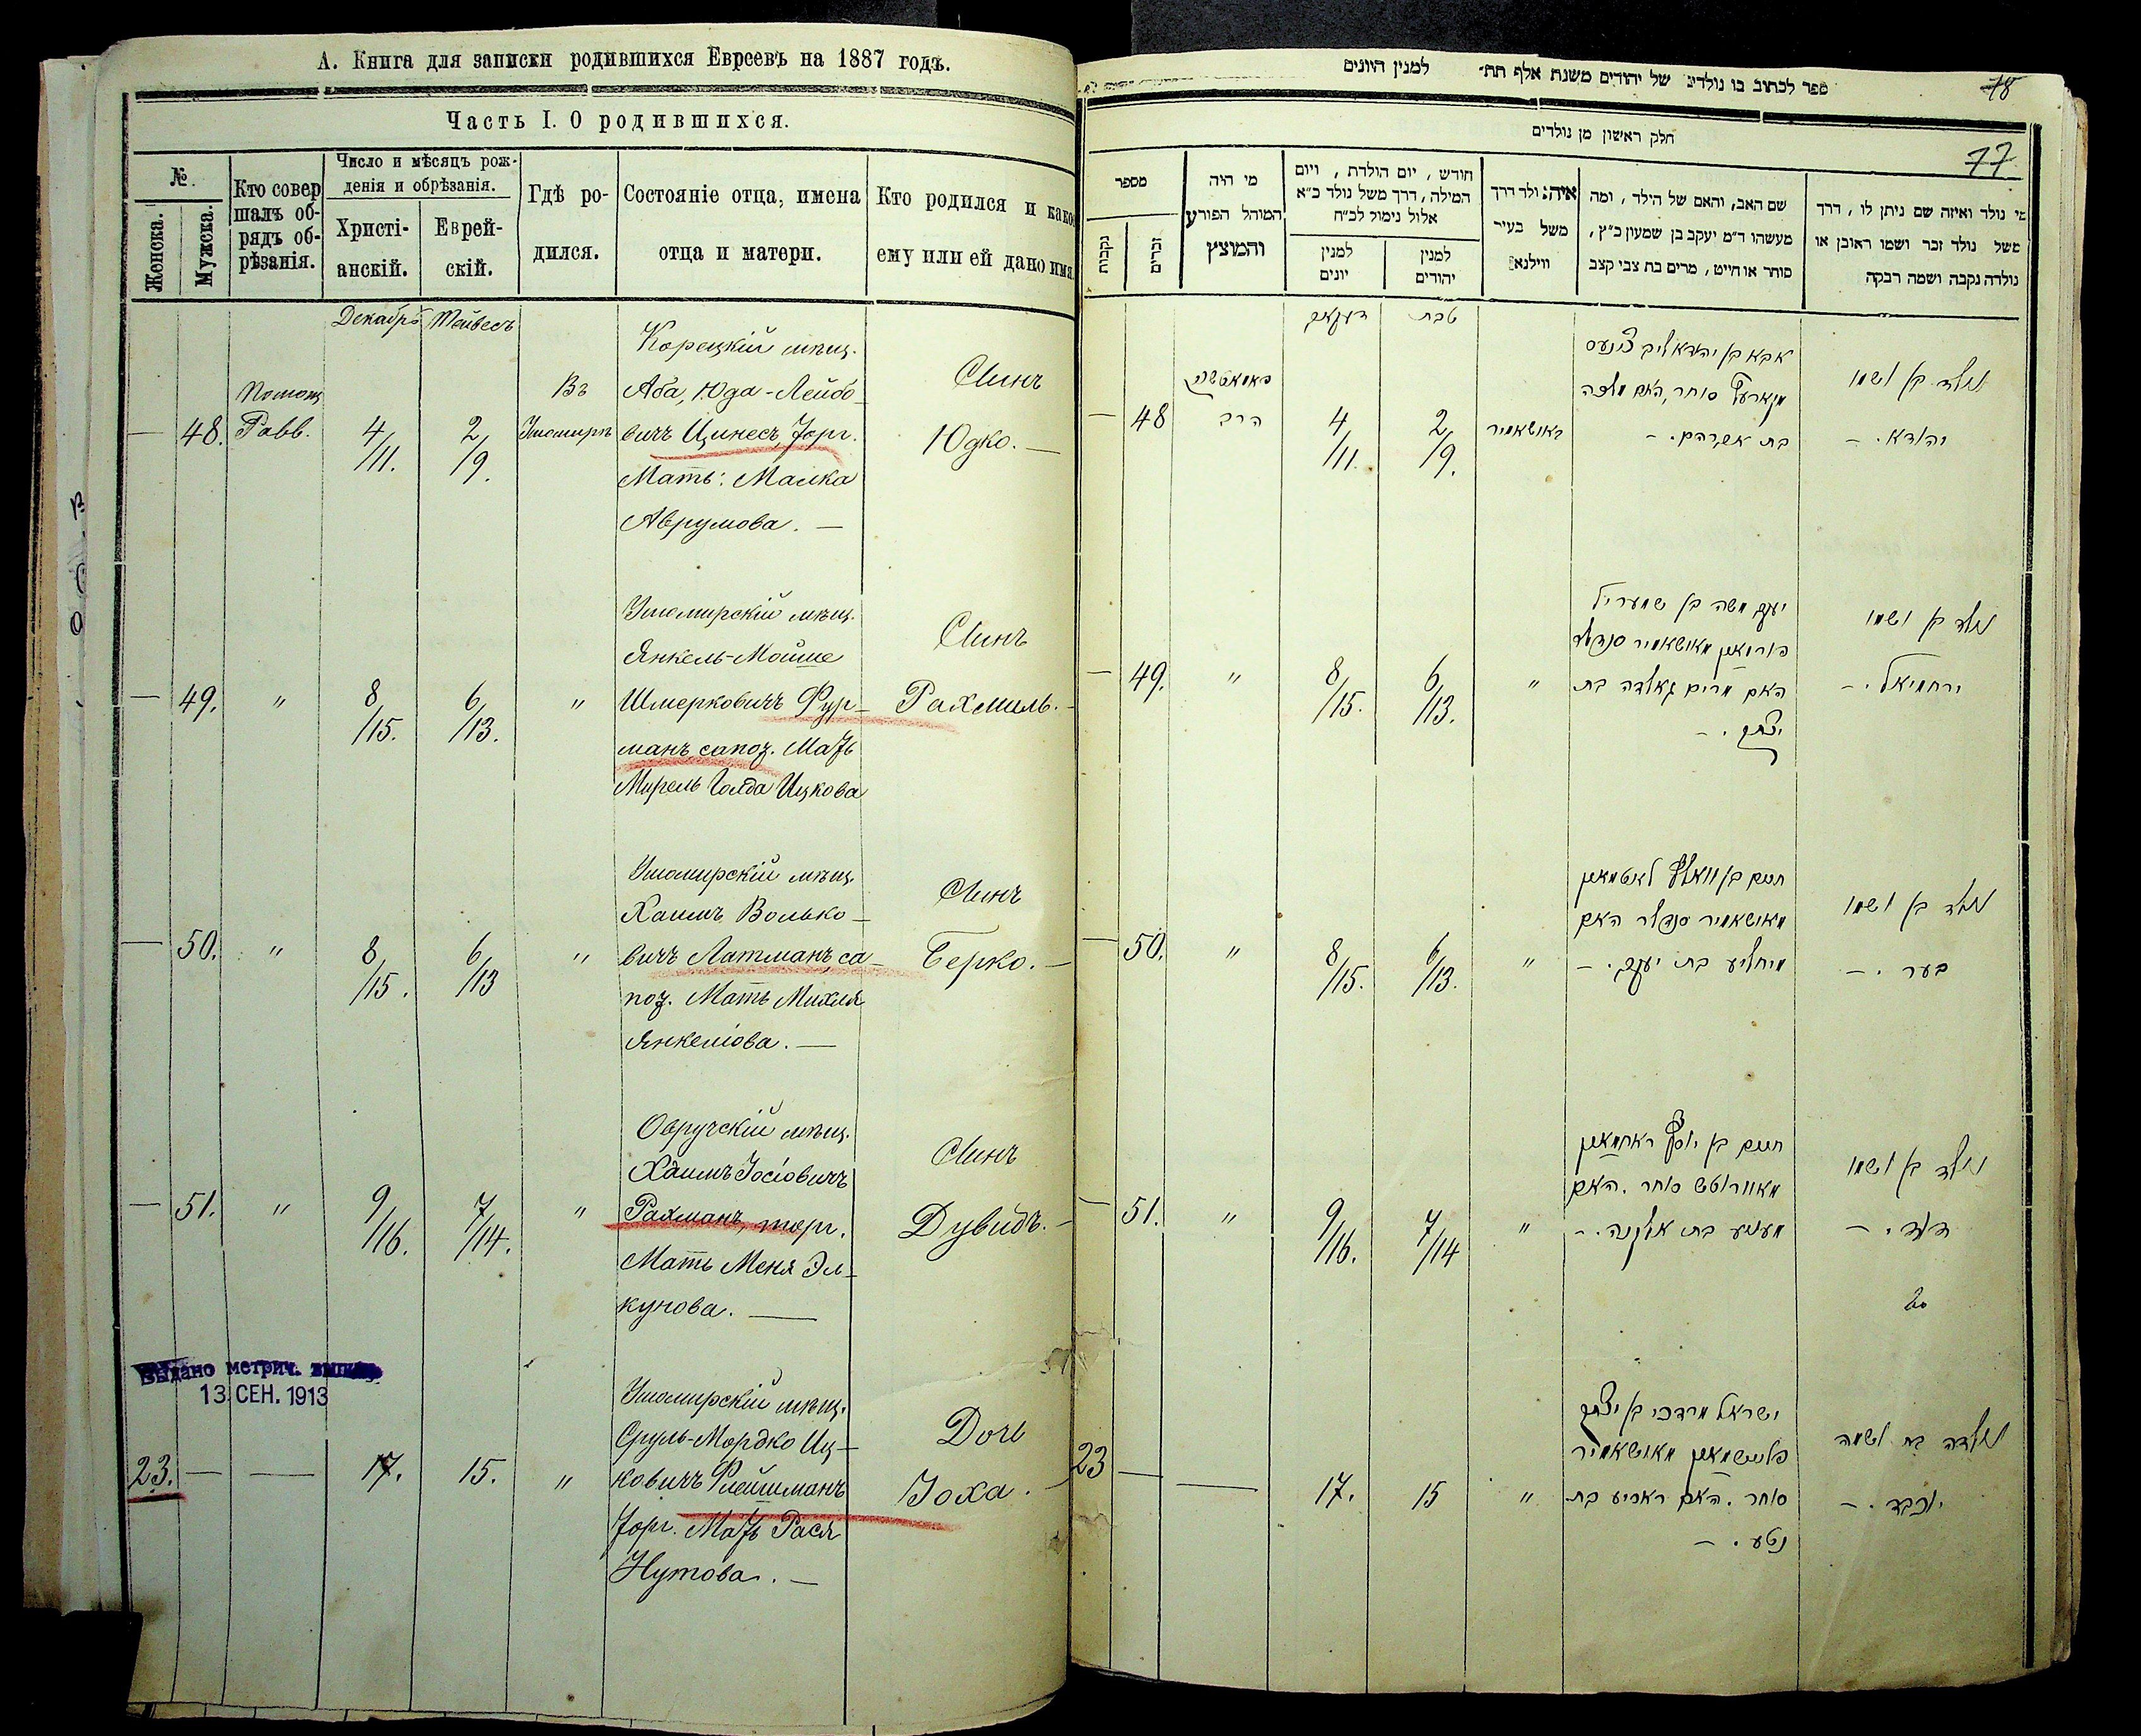 А. Книга для записки родившихся Евреевъ на 1887 годъ.
Часть I. О родившихся.
№.
Женска.
Мужска.
Кто совер
шалъ об-
рядъ об-
рѣзанія.
Число и мѣсяцъ рож-
денія и обрѣзанія.
Христі-
анскій.
Еврей-
скій.
Гдѣ ро-
дился.
Состояніе отца, имена
отца и матери.
Кто родился и какое
ему или ей дано имя
Декабрь Тейвесъ
— 48. Помощ
Равв. 4/11. 2/9. Въ
Ушомирѣ
Корецкій мѣщ.
Аба, Юда-Лейбо-
вичъ Цинесъ, торг.
Мать: Малка
Аврумова. —
Сынъ
Юдко. —
— 49. " 8/15. 6/13. "
Ушомирскій мѣщ.
Янкель-Мойше
Шмерковичъ Фур-
манъ, сапож. Мать
Мирель Голда Ицкова
Сынъ
Рахмиль. -
— 50. " 8/15. 6/13 "
Ушомирскій мѣщ.
Хаимъ Волько-
вичъ Латманъ, са-
пож. Мать Михля
Янкелiова. —
Сынъ
Берко. —
— 51. " 9/16. 7/14. "
Овручскій мѣщ.
Хаимъ Іосіовичъ
Рахманъ, торг.
Мать Меня Эл-
кунова. —
Сынъ
Дувидъ. —
Выдано метрич.
13 СЕН. 1913
23. — — 17. 15. "
Ушомирскій мѣщ.
Сруль-Мордко Иц-
ковичъ Флейшманъ
торг. Мать Рася
Нутова. —
Дочь
Іоха. —
ספר לכתוב בו נולדים של יהודים משנת אלף תת״ למנין היונים
78
77
חלק ראשון מן נולדים
מספר
נקבות
זכרים
מי היה
המוהל הפורע
והמוצץ
חודש , יום הולדת , ויום
המילה, דרך משל נולד כ״א
אלול נימול לכ״ח
למנין
יונים
למנין
יהודים
איה: ולד דרך
משל בעיר
ווילנא
שם האב, והאם של הילד , ומה
מעשהו ד״מ יעקב בן שמעון כ״ץ ,
סוחר או חייט , מרים בת צבי קצב
מי נולד ואיזה שם ניתן לו , דרך
משל נולד זכר ושמו ראובן או
נולדה נקבה ושמה רבקה
דעקאב טבת
— 48 הרב 4/11. 2/9. באושאמיר
סוחר, האם מלכה
בת אברהם. -
נולד בן ושמו
יהודא. -
— 49. " 8/15. 6/13. "
יעקב משה בן שמעריל
פורמאן מאושאמיר סנדלר
האם מרים גאלדה בת
יצחק. -
נולד בן ושמו
ירחמיאל. -
— 50. " 8/15. 6/13. "
חיים בן וואלף לאטמאן
מאושאמיר סנדלר האם
מיחליע בת יעקב. -
נולד בן ושמו
בער. -
— 51. " 9/16. 7/14 "
חיים בן יוסף ראחמאן
מאוורוטש סוחר. האם
מעניע בת אלקנה. -
נולד בן ושמו
דוד. -
23 — — 17. 15 "
ישראל מרדכי בן יצחק
פליישמאן מאושאמיר
סוחר. האם ראסיע בת
נטע. -
נולדה בת ושמה
יוכבד. -